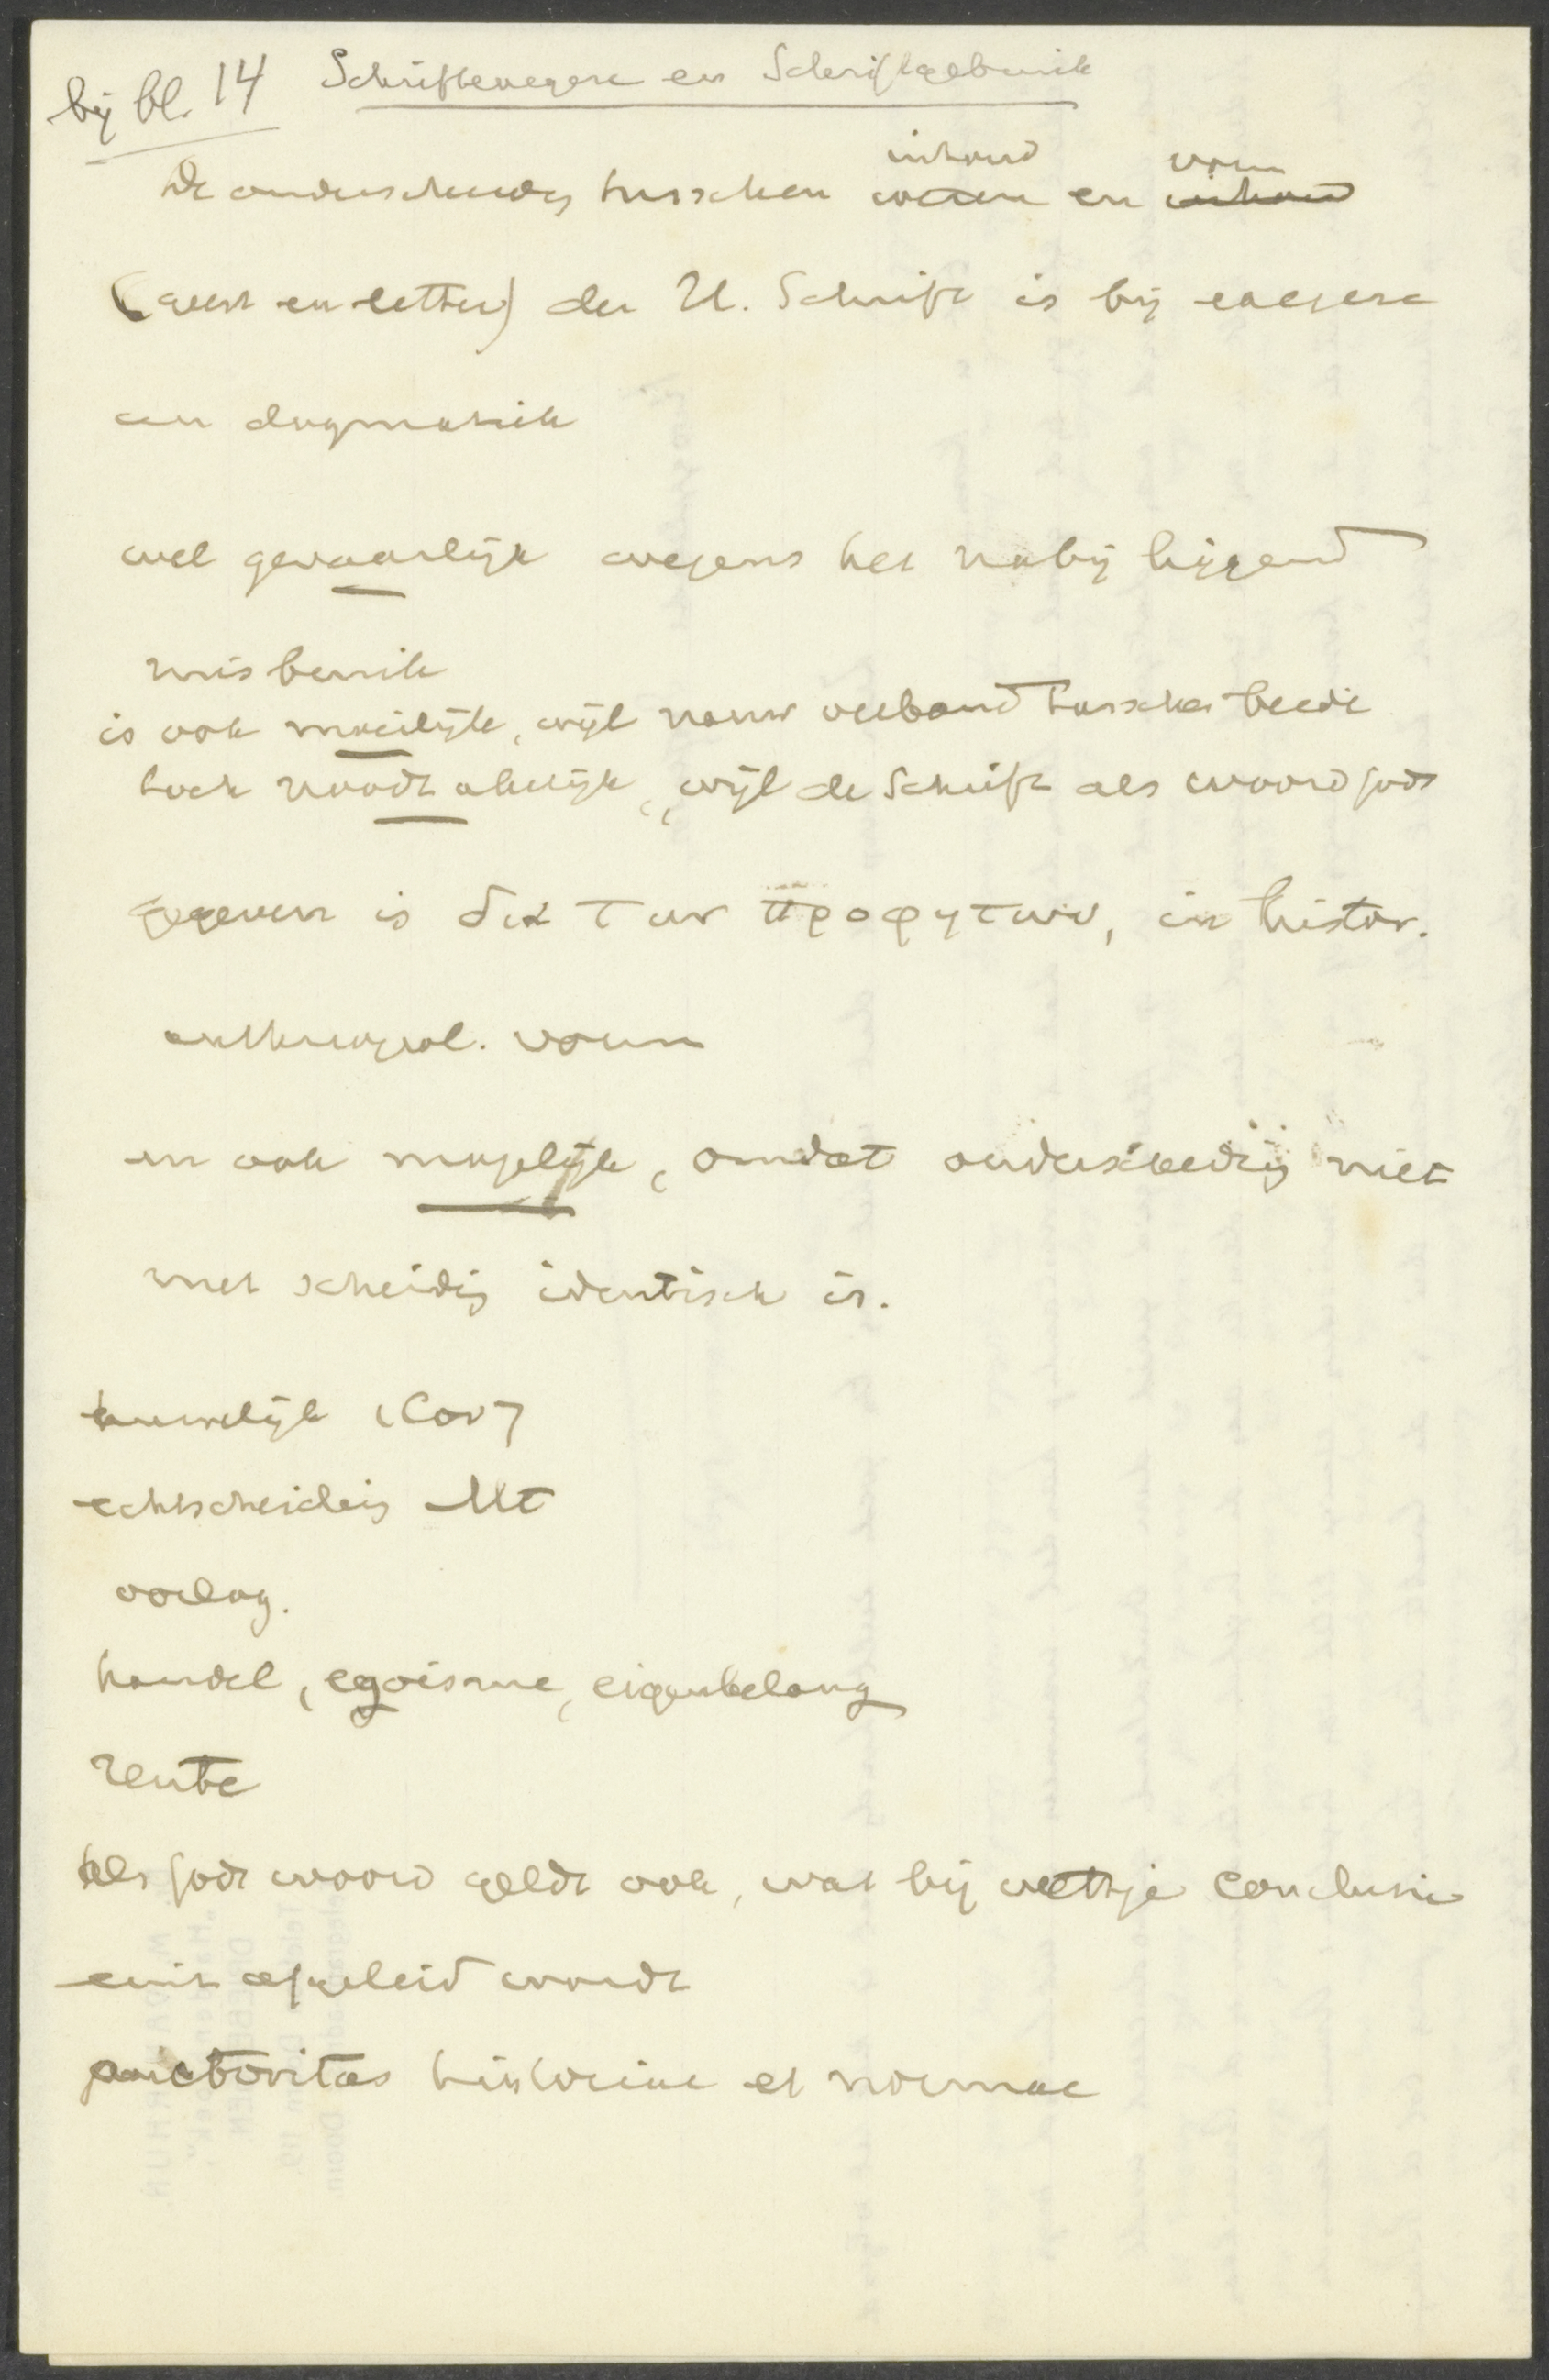 bij bl. 14 Schriftexegese en Schriftgebruik
De onderscheiding tusschen inhoud en vorm
(geest en letter) der H. Schrift is bij exegese
en dogmatiek
wel gevaarlijk wegens het nabij liggend
misbruik
is ook moeilijk, wijl nauw verband tusschen beide
toch noodzakelijk, wijl de Schrift als woord Gods
gegeven is δια των προφητων, in histor.
anthropol. vorm
en ook mogelijk, omdat onderscheiding niet
met scheiding identisch is.
huwelijk 1 Cor 7
echtscheiding Mt
oorlog.
handel, egoisme, eigenbelang
rente
Als Gods woord geldt ook, wat bij wettige conclusie
eruit afgeleid wordt
auctoritas historiae et normae